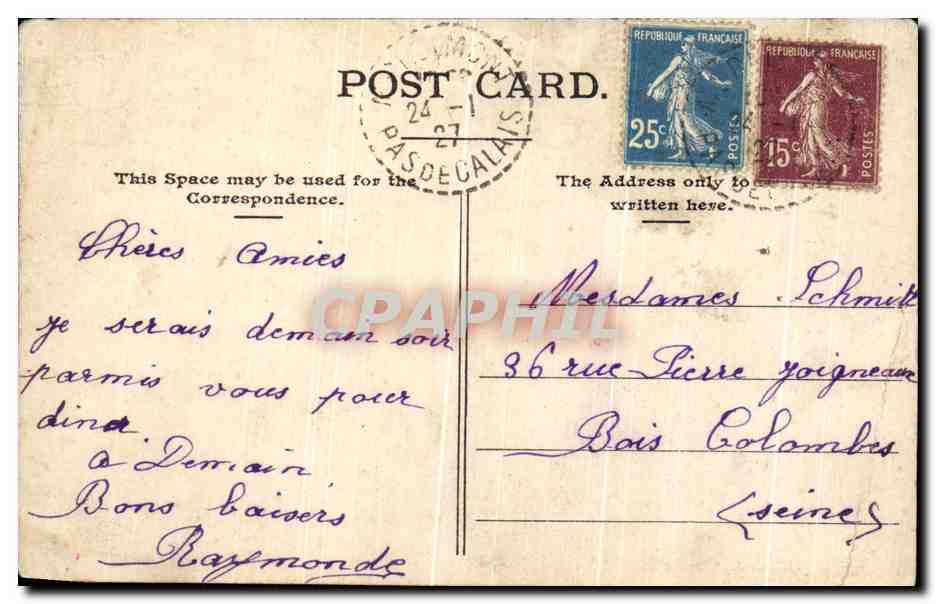 POST CARD.
24 - 1
27
PAS DE CALAIS
REPUBLIQUE FRANÇAISE
25c
POSTES
REPUBLIQUE FRANÇAISE
15c
POSTES
This Space may be used for the
Correspondence.
The Address only to
written here.
Chères Amies
je serais demain soir
parmis vous pour
diner
à Demain
Bons baisers
Raymonde
Mesdames Schmitt
36 rue Pierre Joigneaux
Bois Colombes
(Seine)
CPAPHIL